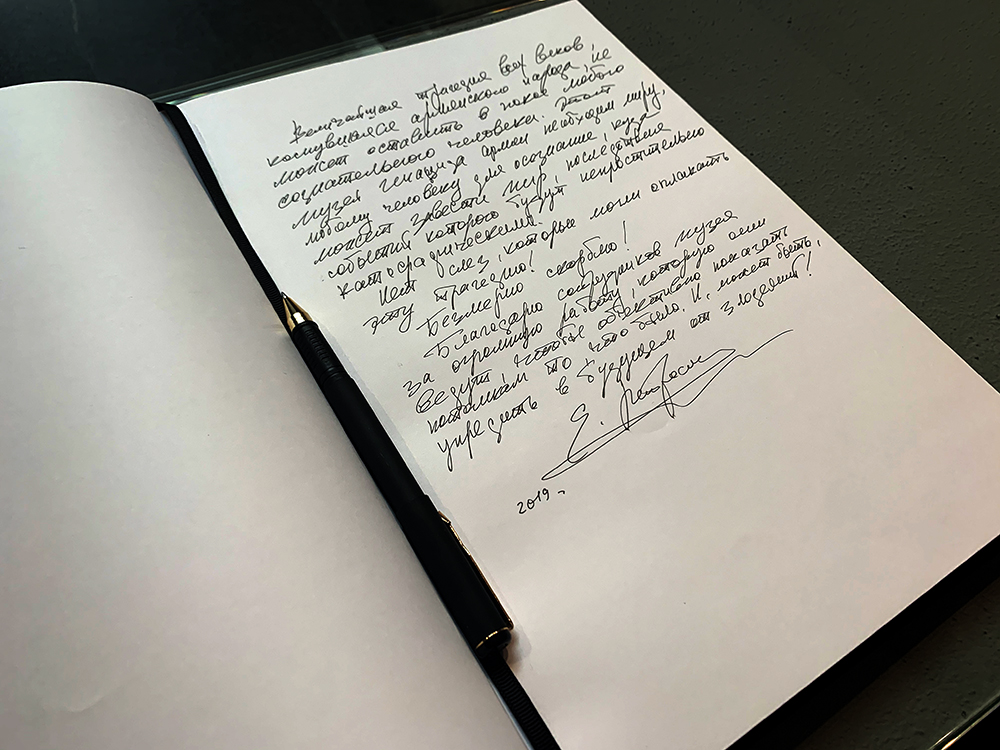 Величайшая трагедия всех веков,
коснувшаяся армянского народа, не
может оставить в покое любого
сознательного человека. Этот
музей геноцида армян необходим миру,
любому человеку для осознания, куда
может завести мир, последствия
событий которого будут непростительно
катострафическими.
Нет слез, которые могли оплакать
эту трагедию!
Безмерно скорблю!
Благодарю сотрудников музея
за огромную работу, которую они
ведут чтобы объективно показать
потомкам то что было. И, может быть,
упредить в будущем от злодеяний!
Е.
2019 г.